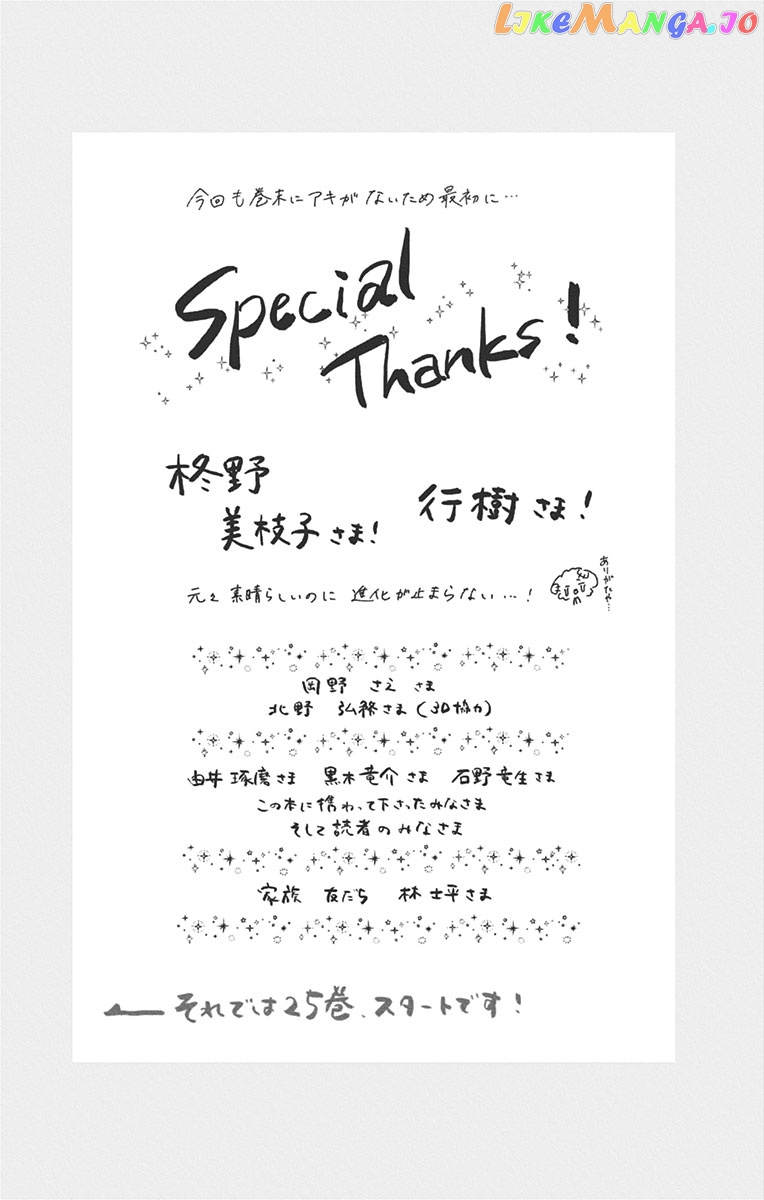 LIKEMANGA.IO
今回も巻末にアキがないため最初に…
Special
Thanks!
柊野
美枝子さま!
行樹さま!
元々素晴らしいのに進化が止まらない…!
ありがたや…
岡野 さえ さま
北野 弘務さま(3D協力)
由井 琢磨さま 黒木竜介さま 石野竜生さま
この本に携わって下さったみなさま
そして読者のみなさま
家族 友だち 林士平さま
それでは25巻、スタートです!